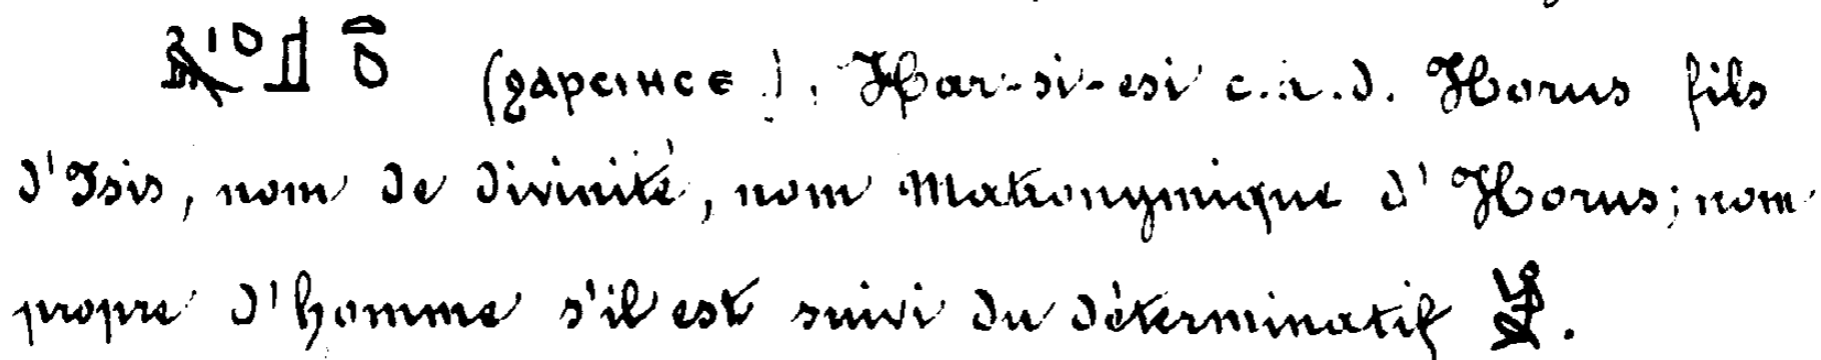 (ϩⲁⲣⲥⲓⲏⲥⲉ), Har-si-esi c.à.d. Horus fils
d'Isis, nom de divinité, nom Matronymique d'Horus; nom
propre d'homme s'il est suivi du déterminatif 𓀀.